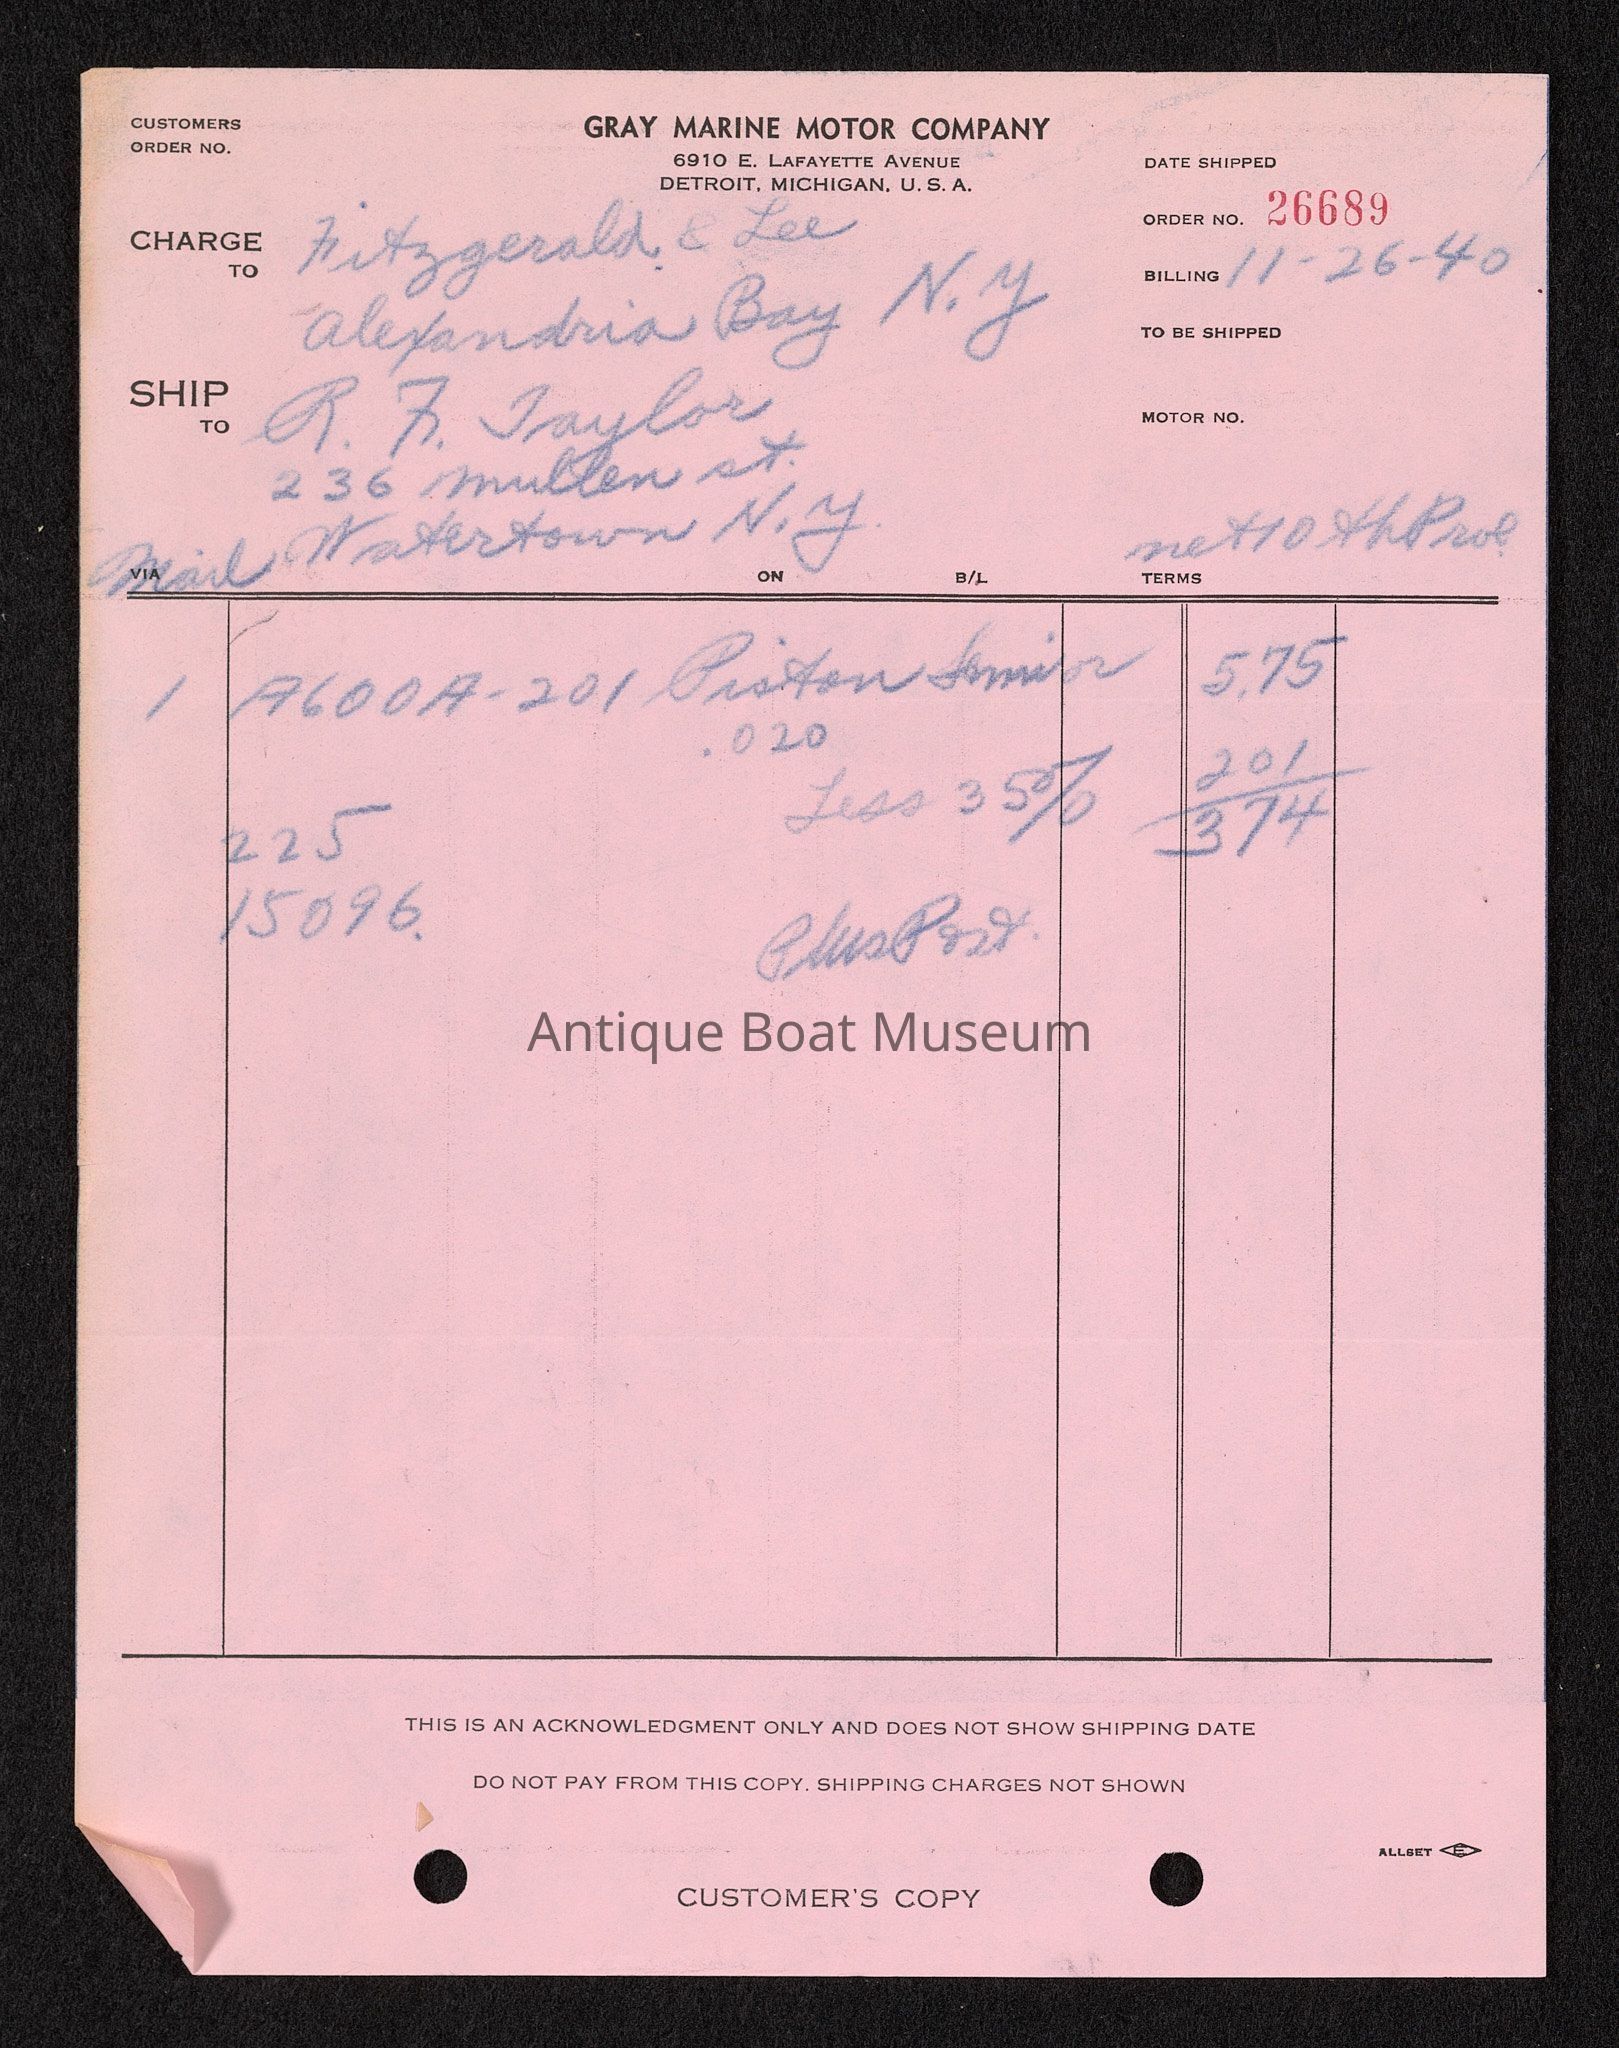 CUSTOMERS
ORDER NO.
GRAY MARINE MOTOR COMPANY
6910 E. LAFAYETTE AVENUE
DETROIT, MICHIGAN, U. S. A.
DATE SHIPPED
ORDER NO. 26689
CHARGE TO Fitzgerald & Lee
Alexandria Bay N.Y
BILLING 11-26-40
TO BE SHIPPED
SHIP TO R. F. Taylor
MOTOR NO.
236 Mullen st.
Watertown N.Y.
Mail
net 10th Prox
VIA ON B/L TERMS
1 A600A-201 Piston 5.75
.020
Less 35% 201
374
225
15096.
Plus Post.
Antique Boat Museum
THIS IS AN ACKNOWLEDGMENT ONLY AND DOES NOT SHOW SHIPPING DATE
DO NOT PAY FROM THIS COPY. SHIPPING CHARGES NOT SHOWN
ALLSET E
CUSTOMER'S COPY